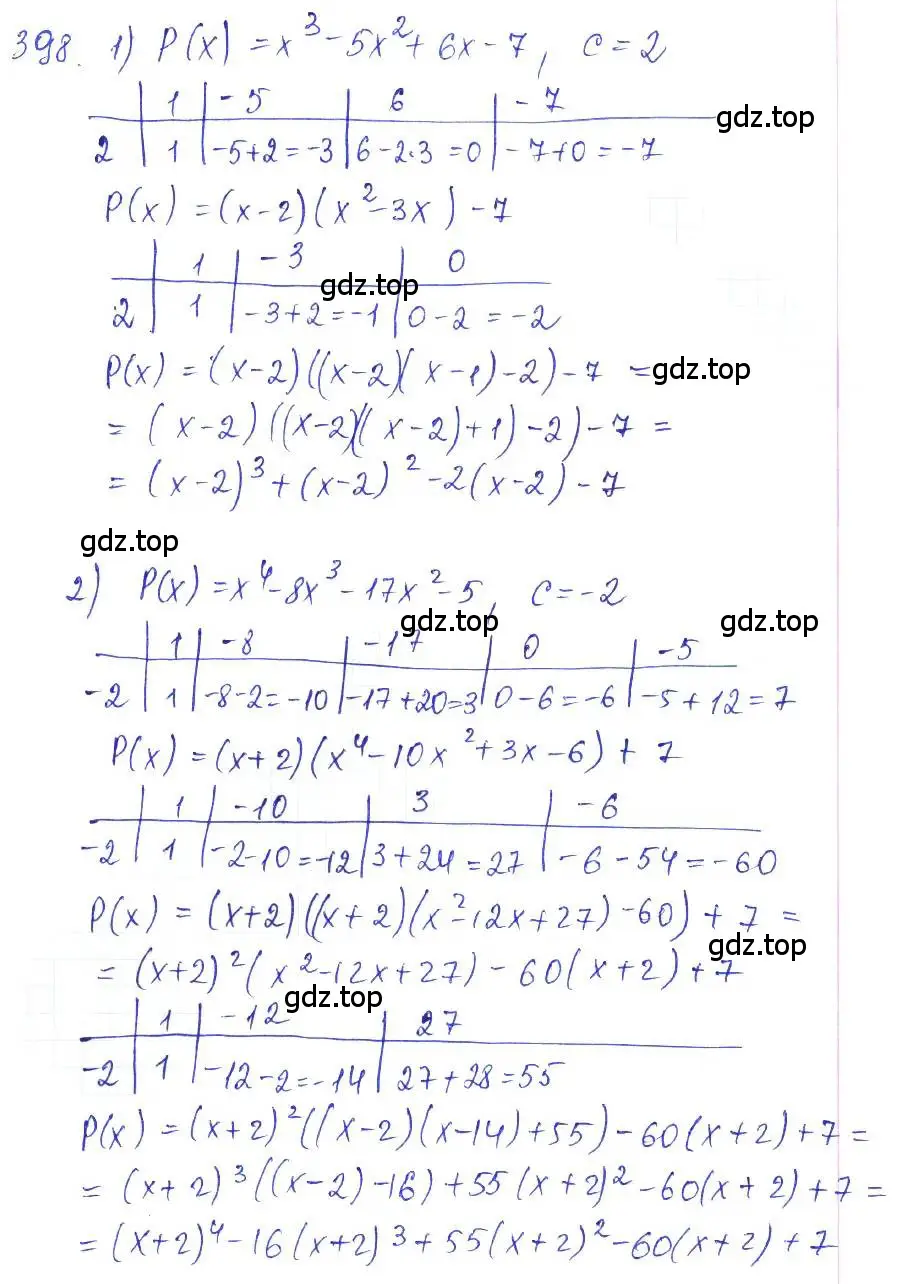 398. 1) P(x) = x³ - 5x² + 6x - 7, c = 2
1 | -5 | 6 | -7
gdz.top
2 | 1 | -5+2=-3 | 6-2·3=0 | -7+0=-7
P(x) = (x-2)(x²-3x) - 7
1 | -3 | 0
gdz.top
2 | 1 | -3+2=-1 | 0-2=-2
P(x) = (x-2)((x-2)(x-1)-2)-7 =
gdz.top
= (x-2)((x-2)((x-2)+1)-2)-7 =
= (x-2)³+(x-2)²-2(x-2)-7
gdz.top
2) P(x)=x⁴-8x³-17x²-5, c=-2
gdz.top gdz.top
1 | -8 | -17 | 0 | -5
-2 | 1 | -8-2=-10 | -17+20=3 | 0-6=-6 | -5+12=7
P(x) = (x+2)(x⁴-10x²+3x-6) + 7
1 | -10 | 3 | -6
-2 | 1 | -2-10=-12 | 3+24=27 | -6-54=-60
P(x) = (x+2)((x+2)(x²-12x+27)-60)+7 =
gdz.top
= (x+2)²(x²-12x+27)-60(x+2)+7
gdz.top
1 | -12 | 27
-2 | 1 | -12-2=-14 | 27+28=55
P(x) = (x+2)²((x-2)(x-14)+55)-60(x+2)+7=
= (x+2)³((x-2)-16)+55(x+2)²-60(x+2)+7=
= (x+2)⁴-16(x+2)³+55(x+2)²-60(x+2)+7